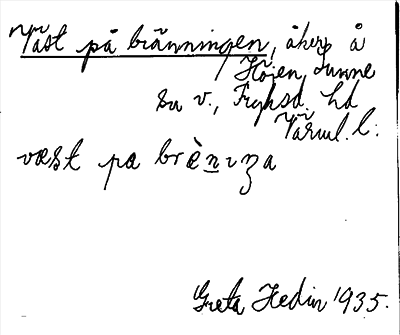 Väst på bränningen, åker å
Höjen, Sunne
sn v., Fryksd. hd
Värml. l.
væst pa brènıŋa
Greta Hedin 1935.